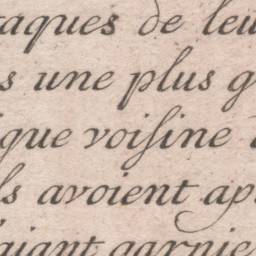 taques de leu
s une plus g
ique voiſine
ls avoient ap
aiant garnie